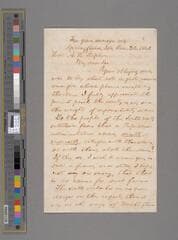 For your own eye only
Springfield, Ills. Dec. 22, 1860
Hon. A. H. Stephens
My dear Sir
Your obliging ans-
wer to my short note is just
and for which please accept my
thanks. I fully appreciate the
present peril the country is in, and
the weight of responsibility on me.
Do the people of the South
entertain fears that a Republican
administration would, directly, or
indirectly, interfere with
or with them, about their
If they do, I wish to assure you, as
once a friend, and still, I hope,
not an enemy, that there
is no cause for such fears.
The South would be in no more
danger in this respect, than it
was in the days of Washington